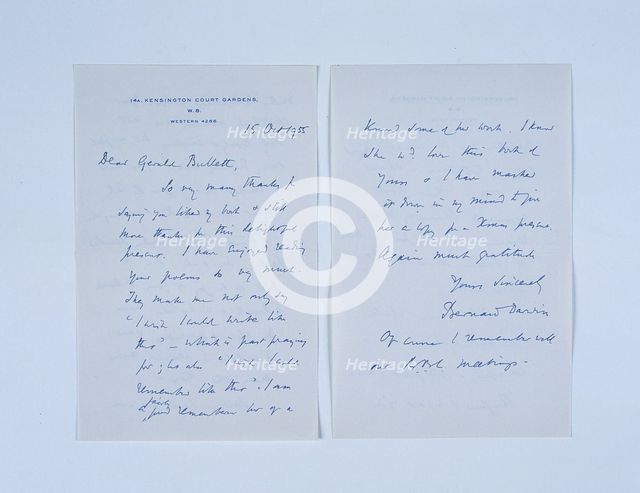 14A, KENSINGTON COURT GARDENS,
W.8.
WESTERN 4266
15 Oct 1955
Dear Gerald Bullett,
So very many thanks for
saying you liked my book & still
more thanks for this delightful
present. I have enjoyed reading
your poems so very much.
They make me not only say
"I wish I could write like
this" – which is past praying
for; but also "I wish I could
remember like this". I am
a fairly good rememberer but of a
some of her work. I know
she wd. love this book of
yours & I have marked
it down in my mind to give
her a copy for a Xmas present.
Again much gratitude
Yours sincerely
Bernard Darwin
Of course I remember well
our meetings.
Heritage
Heritage
Heritage
Heritage
Heritage
Heritage
Heritage
Heritage
©